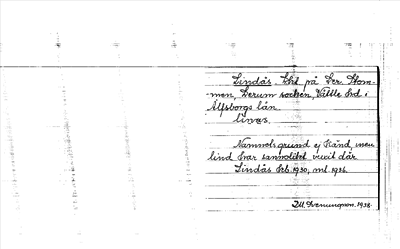 Lindås lht på Ler. Stom-
men, Lerum socken, Vättle hd i
Älfsborgs län.
linås.
Namnets grund ej känd, men
lind har sannolikt vuxit där
Lindås Eb. 1930, ml. 1934.
1938.